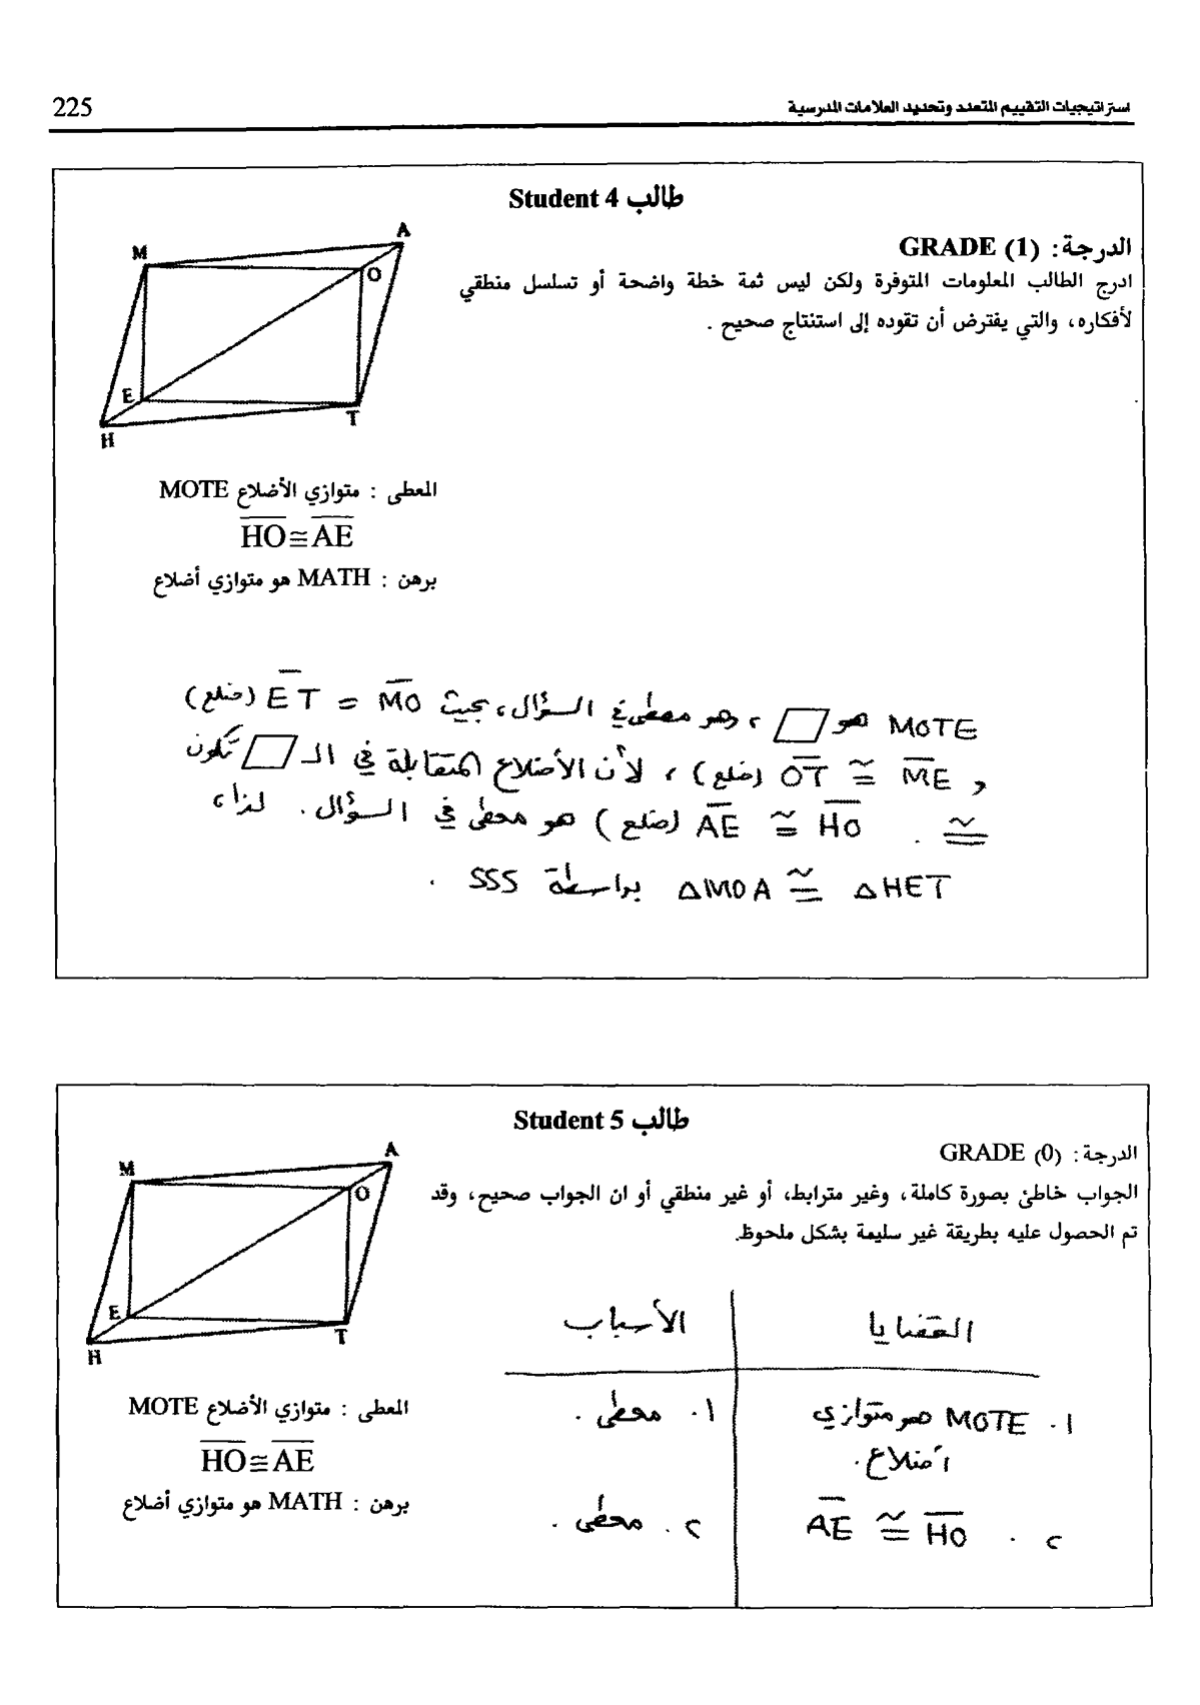 225
استراتيجيات التقييم المتعدد وتحديد العلامات المدرسية
طالب Student 4
الدرجة: GRADE (1)
ادرج الطالب المعلومات المتوفرة ولكن ليس ثمة خطة واضحة أو تسلسل منطقي
لأفكاره، والتي يفترض أن تقوده إلى استنتاج صحيح .
M
A
O
E
T
H
المعطى : متوازي الأضلاع MOTE
HO≅AE
برهن : MATH هو متوازي أضلاع
MOTE هو ▱ ، وهو معطى في السؤال، بحيث MO = ET (ضلع)
و ME ≅ OT (ضلع) ، لأن الأضلاع المتقابلة في الـ ▱ تكون
≅ . HO ≅ AE (ضلع) هو معطى في السؤال . لذا،
△HET ≅ △MOA بواسطة SSS .
طالب Student 5
الدرجة: GRADE (0)
الجواب خاطئ بصورة كاملة، وغير مترابط، أو غير منطقي أو ان الجواب صحيح، وقد
تم الحصول عليه بطريقة غير سليمة بشكل ملحوظ.
M
A
O
E
T
H
المعطى : متوازي الأضلاع MOTE
HO≅AE
برهن : MATH هو متوازي أضلاع
القضايا
الأسباب
١. MOTE هو متوازي
أضلاع.
١. معطى .
٢. HO ≅ AE
٢. معطى .